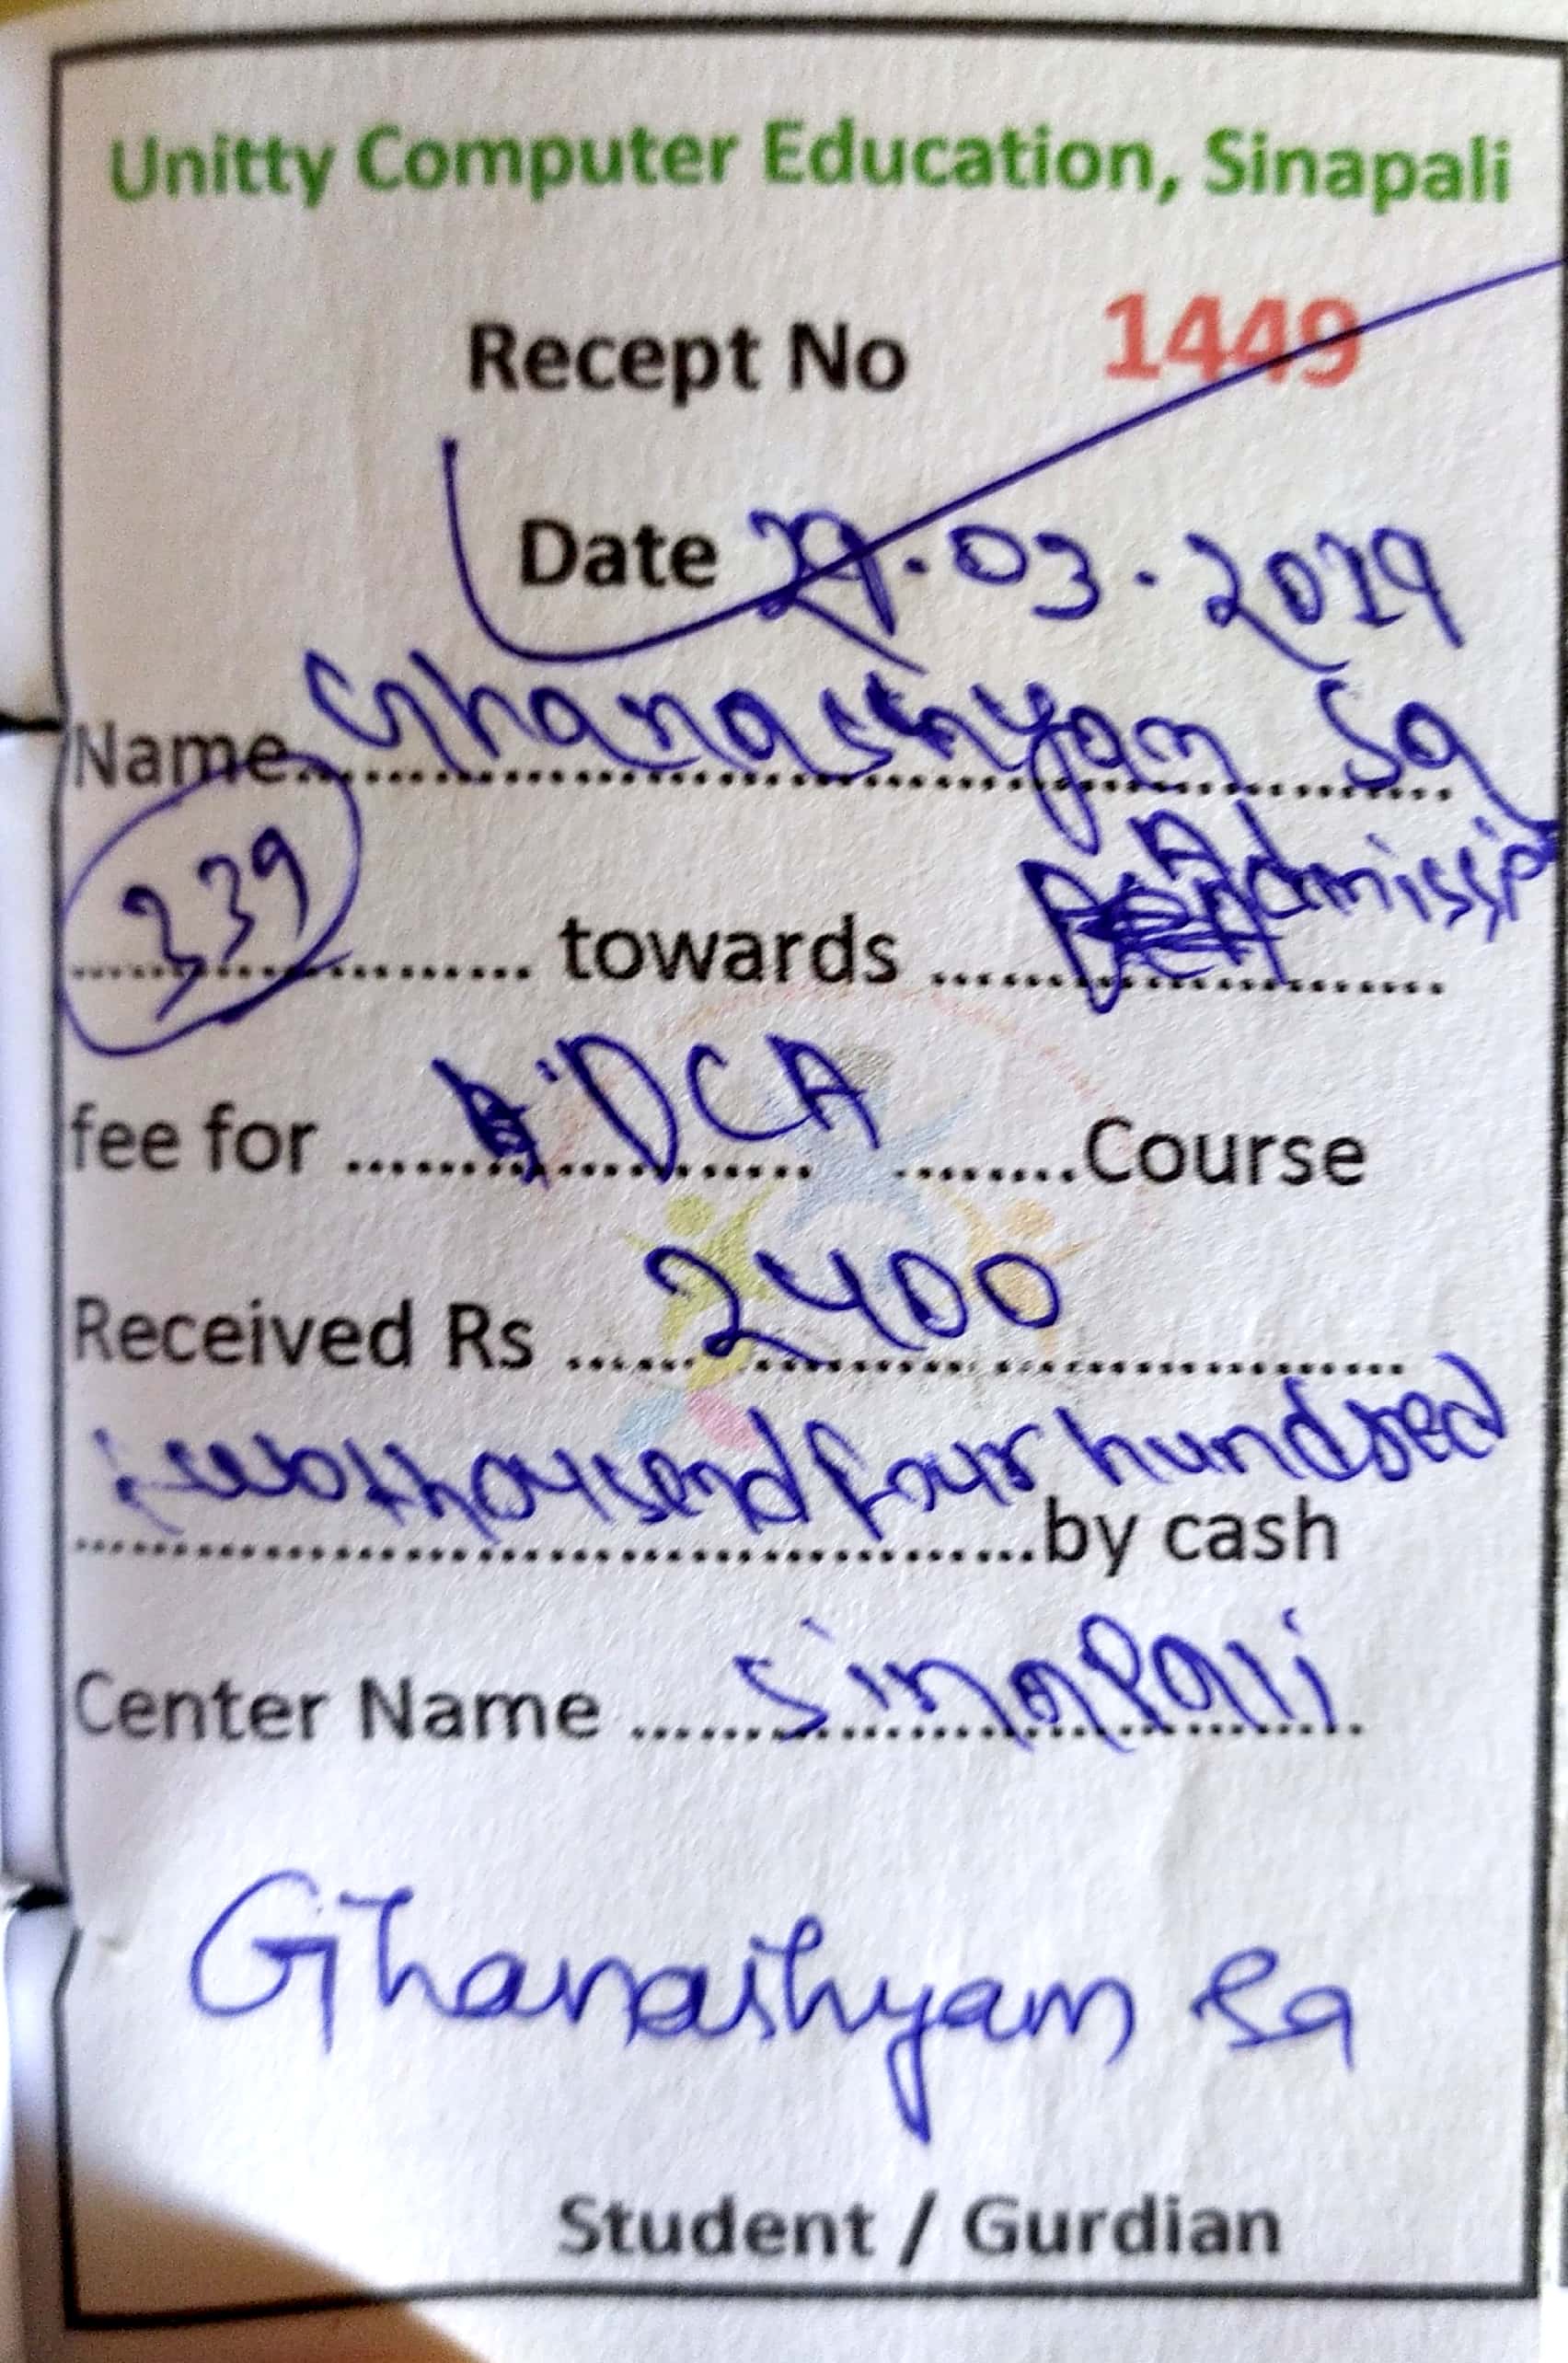 Unitty Computer Education, Sinapali
Recept No 1449
Date 29.03.2019
Name Ghanashyam Sa
339 towards Admissio
fee for DCA Course
Received Rs 2400
twothousend four hundred
by cash
Center Name Sinapali
Ghanashyam Sa
Student / Gurdian